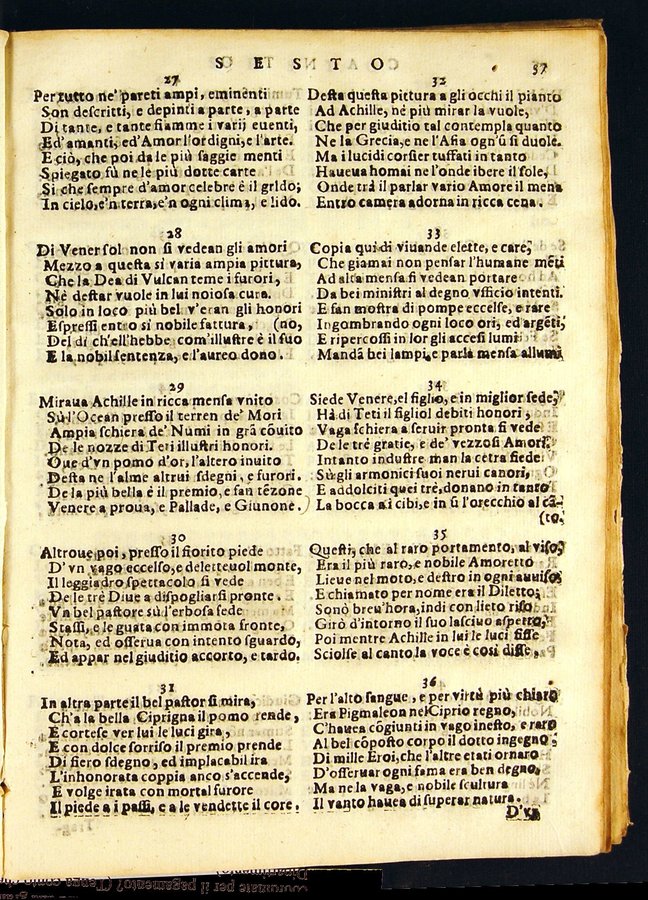 SESTO 37
27
Per tutto ne' pareti ampi, eminenti
Son descritti, e depinti a parte, a parte
Di tante, e tante fiamme i varij euenti,
Ed' amanti, ed' Amor l'ordigni, e l'arte.
E ciò, che poi da le più saggie menti
Spiegato fù ne le più dotte carte
Si che sempre d'amor celebre è il grido;
In cielo, e'n terra, e'n ogni clima, e lido.
28
Di Vener sol non si vedean gli amori
Mezzo a questa si varia ampia pittura,
Che la Dea di Vulcan teme i furori,
Nè destar vuole in lui noiosa cura.
Solo in loco più bel v'eran gli honori
Espressi entro si nobile fattura, (no,
Del dì ch'ell'hebbe com'illustre è il suo
E la nobil sentenza, e l'aureo dono.
29
Miraua Achille in ricca mensa vnito
Sù l'Ocean presso il terren de' Mori
Ampia schiera de' Numi in grã cõuito
De le nozze di Teti illustri honori.
Oue d'vn pomo d'or, l'altero inuito
Desta ne l'alme altrui sdegni, e furori.
De la più bella è il premio, e fan tẽzone
Venere a proua, e Pallade, e Giunone.
30
Altroue poi, presso il fiorito piede
D'vn vago eccelso, e deletteuol monte,
Il leggiadro spettacolo si vede
De le trè Diue a dispogliarsi pronte.
Vn bel pastore sù l'erbosa sede
Stassi, e le guata con immota fronte,
Nota, ed osserua con intento sguardo,
Ed appar nel giuditio accorto, e tardo.
31
In altra parte il bel pastor si mira,
Ch'a la bella Ciprigna il pomo rende,
E cortese ver lui le luci gira,
E con dolce sorriso il premio prende
Di fiero sdegno, ed implacabil ira
L'inhonorata coppia anco s'accende,
E volge irata con mortal surore
Il piede a i passi, e a le vendette il core.
32
Desta questa pittura a gli occhi il pianto
Ad Achille, né più mirar la vuole,
Che per giuditio tal contempla quanto
Ne la Grecia, e ne l'Asia ogn'ũ si duole.
Ma i lucidi corsier tuffati in tanto
Haueua homai ne l'onde ibere il sole,
Onde trà il parlar vario Amore il mena
Entro camera adorna in ricca cena.
33
Copia qui di viuande elette, e care,
Che giamai non pensar l'humane mẽti
Ad alta mensa si vedean portare
Da bei ministri al degno vfficio intenti.
E fan mostra di pompe eccelse, e rare
Ingombrando ogni loco ori, ed argẽti,
E ripercossi in lor gli accesi lumi
Mandã bei lampi, e parla mensa allumi
34
Siede Venere, el figlio, e in miglior sede,
Hà di Teti il figliol debiti honori,
Vaga schiera a seruir pronta si vede
De le trè gratie, e de' vezzosi Amori,
Intanto industre man la cetra fiede
Sù gli armonici suoi nerui canori,
E addolciti quei trè, donano in tanto
La bocca a i cibi, e in sì l'orecchio al cã-
(to.
35
Questi, che al raro portamento, al viso,
Era il più raro, e nobile Amoretto
Lieue nel moto, e destro in ogni auuiso,
E chiamato per nome era il Diletto;
Sonò breu'hora, indi con lieto riso
Girò d'intorno il suo lasciuo aspetto,
Poi mentre Achille in lui le luci fisse
Sciolse al canto la voce è così disse.
36
Per l'alto sangue, e per virtù più chiaro
Era Pigmaleon nel Ciprio regno,
C'hauea cõgiunti in vago inesto, e raro
Al bel cõposto corpo il dotto ingegno;
Di mille Eroi, che l'altre etati ornaro
D'osseruar ogni fama era ben degno,
Ma ne la vaga, e nobile scultura
Il vanto hauea di superar natura.
D'vn